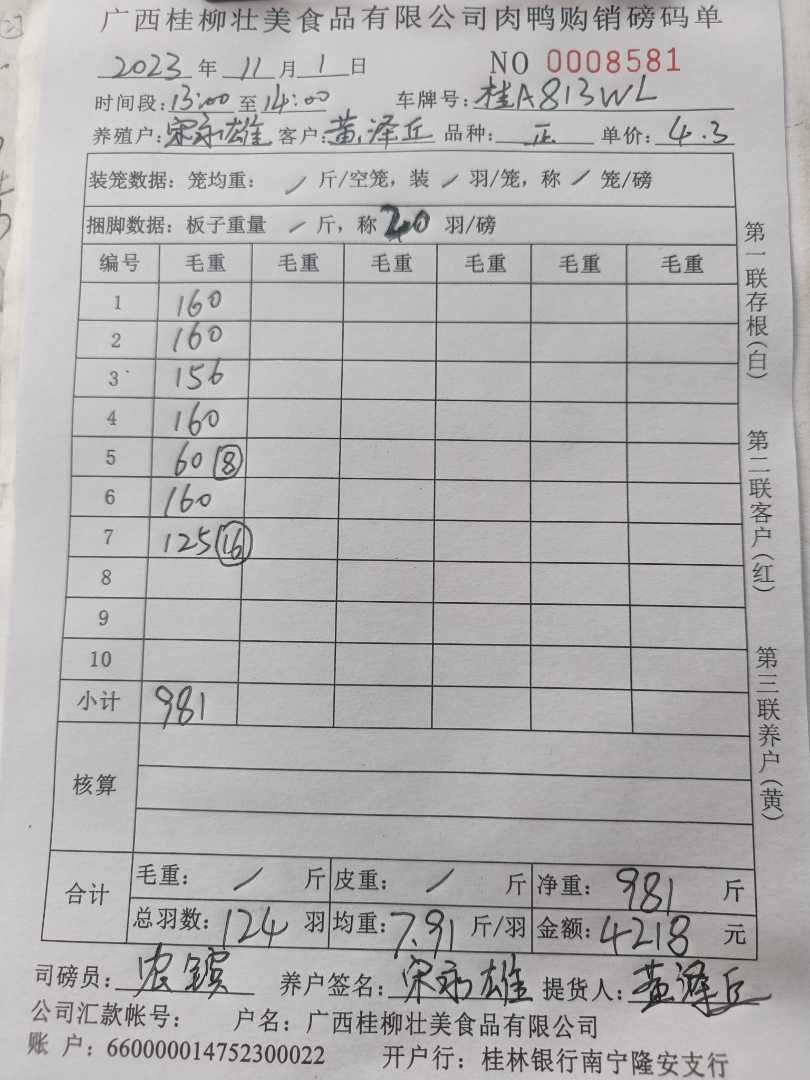 广西桂柳壮美食品有限公司肉鸭购销磅码单
2023 年 11 月 1 日 NO 0008581
时间段: 13:00 至 14:00 车牌号: 桂A813WL
养殖户: 宋永雄 客户: 黄泽丘 品种: 正 单价: 4.3
装笼数据: 笼均重: / 斤/空笼, 装 / 羽/笼, 称 / 笼/磅
捆脚数据: 板子重量 / 斤, 称 20 羽/磅
编号 毛重 毛重 毛重 毛重 毛重 毛重
1 160
2 160
3 156
4 160
5 60 (8)
6 160
7 125 (16)
8
9
10
小计 981
核算
合计 毛重: / 斤 皮重: / 斤 净重: 981 斤
总羽数: 124 羽 均重: 7.91 斤/羽 金额: 4218 元
司磅员: 农 养户签名: 宋永雄 提货人: 黄泽丘
公司汇款帐号: 户名: 广西桂柳壮美食品有限公司
账 户: 660000014752300022 开户行: 桂林银行南宁隆安支行
第一联存根(白)
第二联客户(红)
第三联养户(黄)